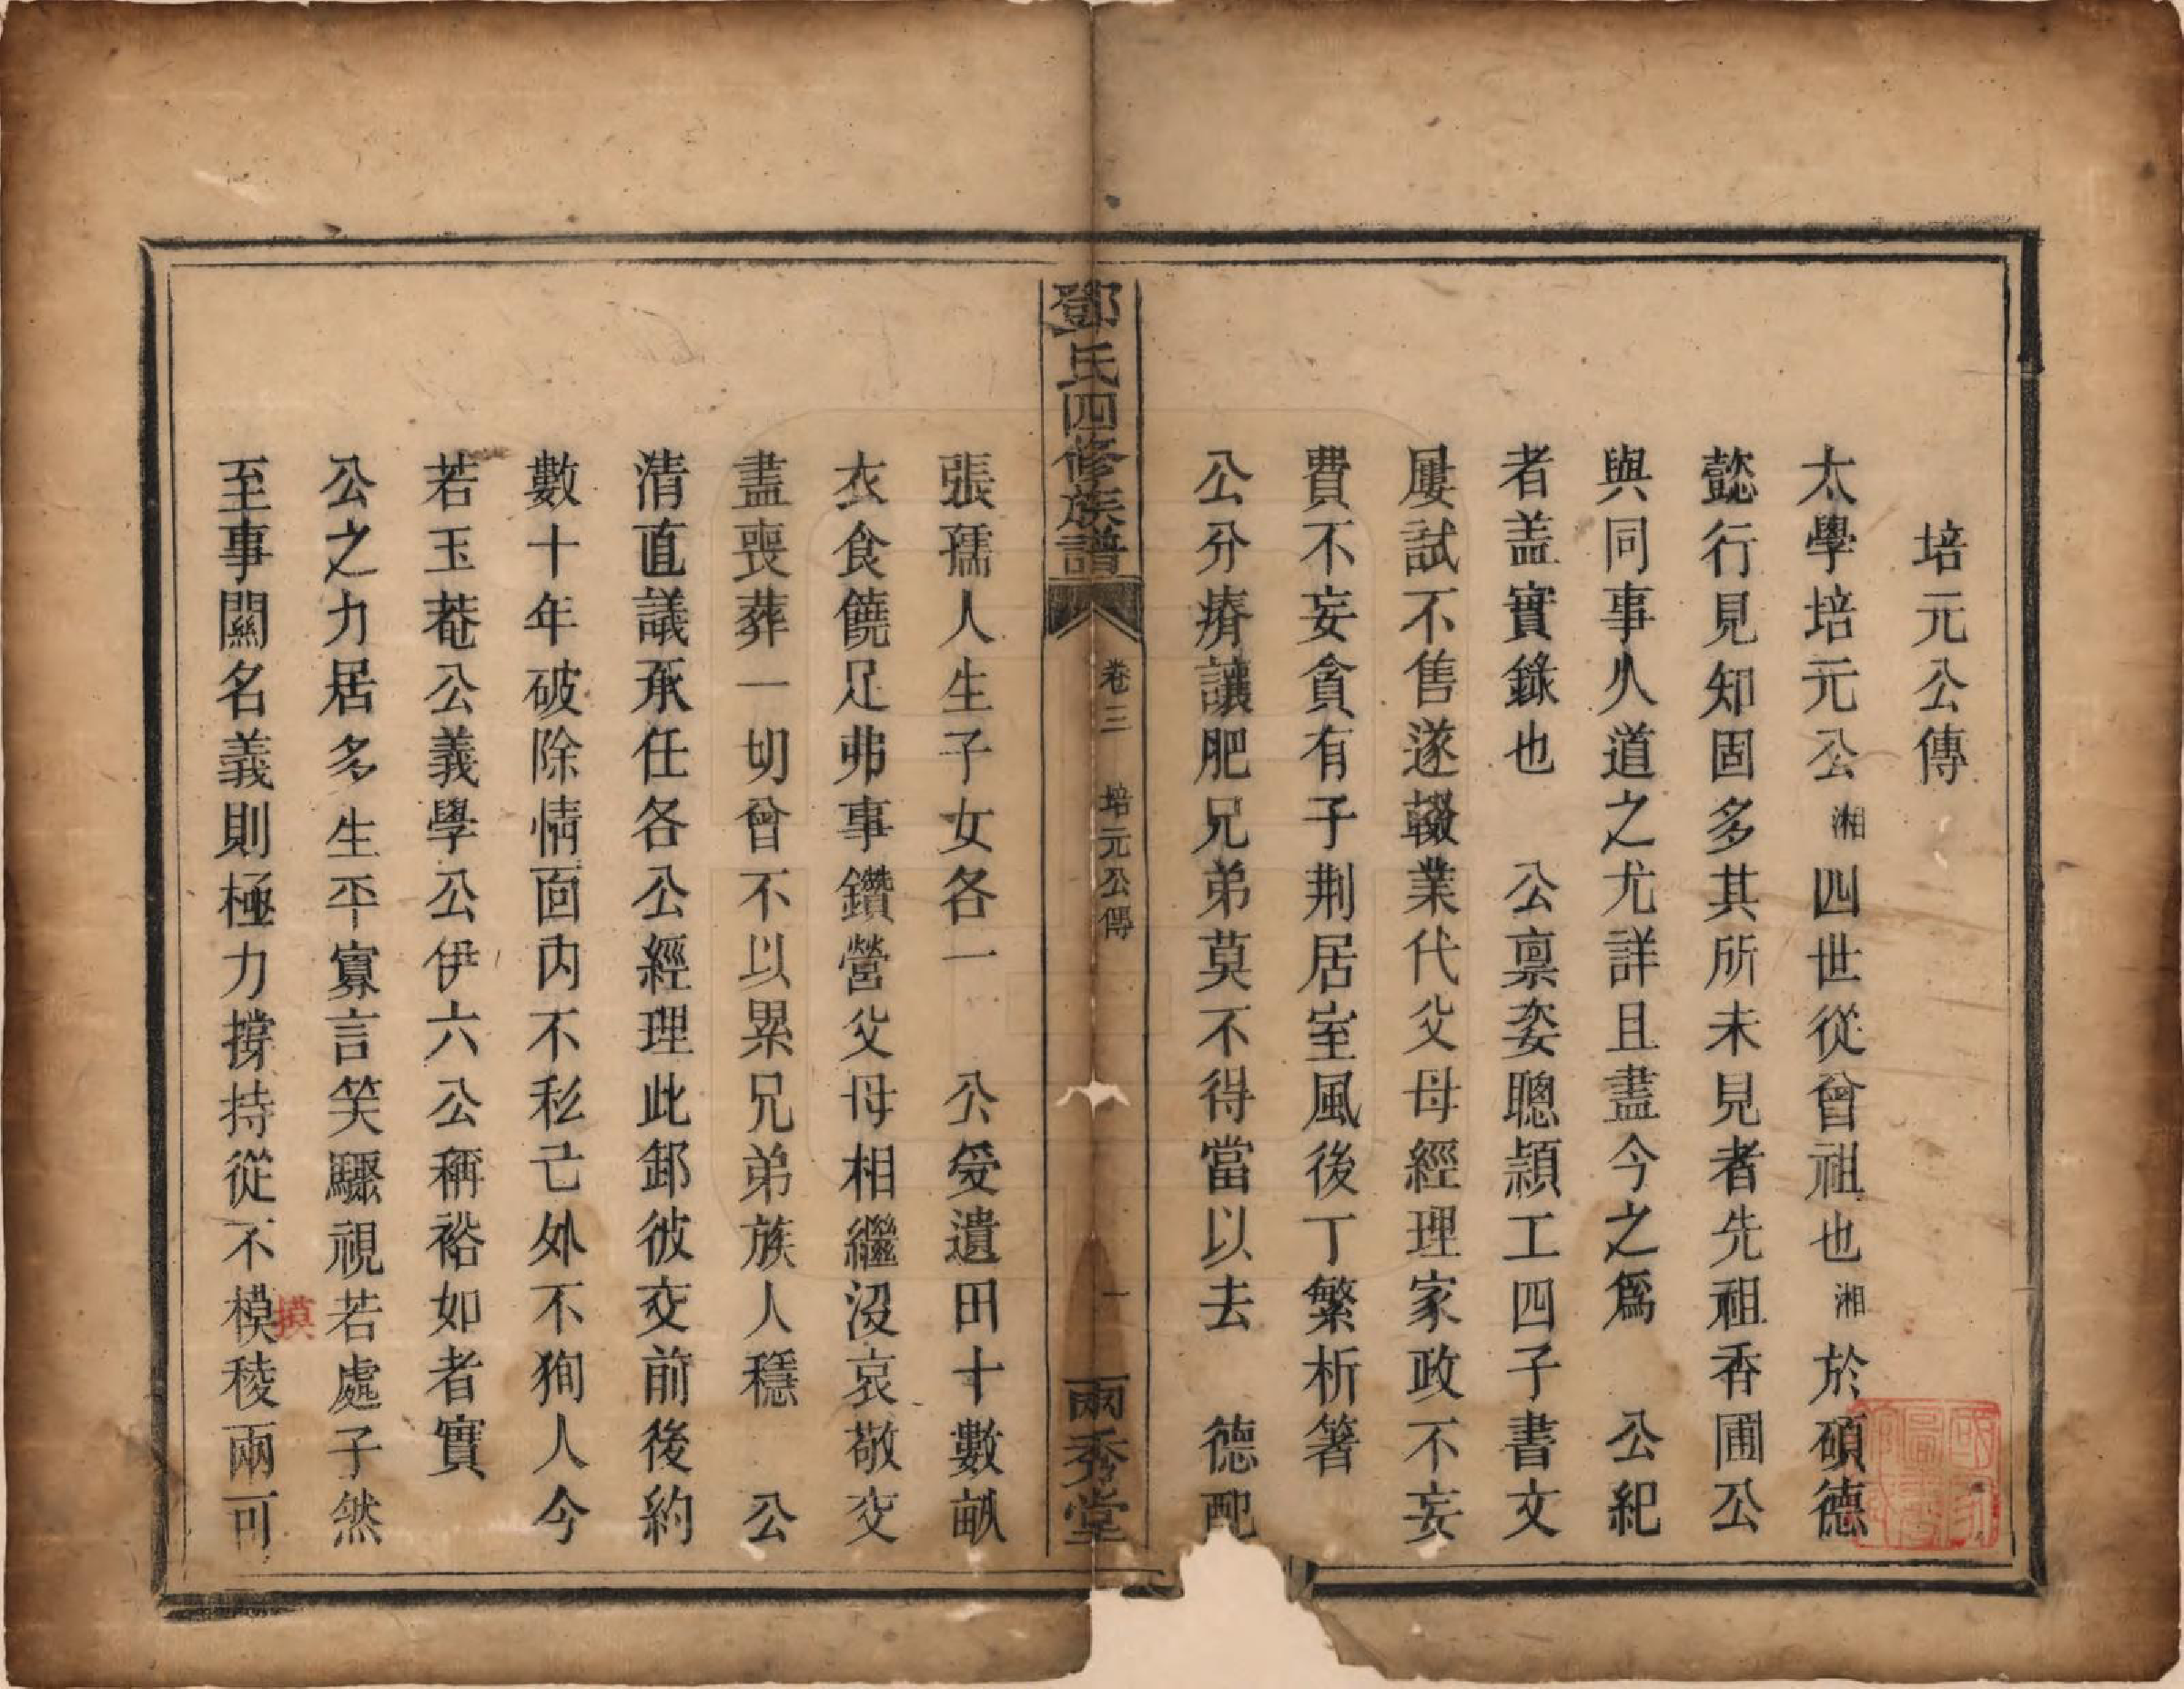 培元公傳
太學培元公湘四世從曾祖也湘於碩德
懿行見知固多其所未見者先祖香圃公
與同事久道之尤詳且盡今之爲　公紀
者盖實錄也　公禀姿聰頴工四子書文
屢試不售遂輟業代父母經理家政不妄
費不妄貪有子荆居室風後丁繁析箸
公分瘠讓肥兄弟莫不得當以去　德配
鄧氏四修族譜　卷三　培元公傳　一　兩秀堂
張孺人生子女各一　公受遺田十數畝
衣食饒足弗事鑽營父母相繼沒哀敬交
盡喪葬一切曾不以累兄弟族人穩　公
清直議承任各公經理此卸彼交前後約
數十年破除情面内不私己外不狥人今
若玉菴公義學公伊六公稱裕如者實
公之力居多生平寡言笑驟視若處子然
至事關名義則極力撐持從不模稜兩可
摸